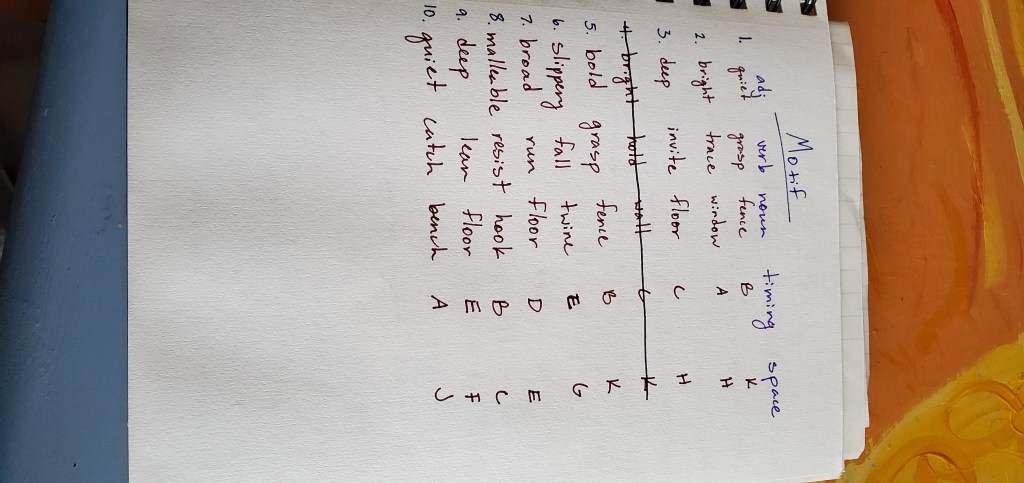 Motif
adj verb noun timing space
1. quiet grasp fence B K
2. bright trace window A H
3. deep invite floor C H
4. bright hold wall G K
5. bold grasp fence B K
6. slippery fall twine E G
7. broad run floor D E
8. malleable resist hook B C
9. deep lean floor E F
10. quiet catch bench A J